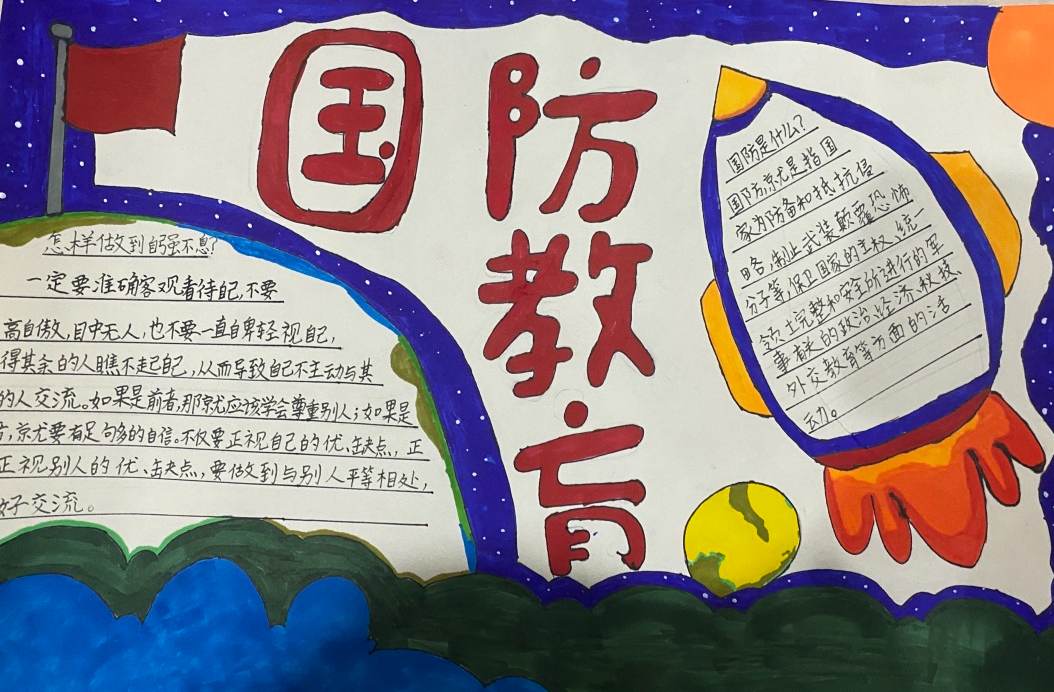 国防教育
怎样做到自强不息？
一定要准确客观看待自己，不要
高自傲，目中无人，也不要一直自卑轻视自己，
得其余的人瞧不起自己，从而导致自己不主动与其
的人交流。如果是前者，那就应该学会尊重别人；如果是
，就要有足够多的自信。不仅要正视自己的优、缺点，正
正视别人的优、缺点，要做到与别人平等相处，
好交流。
国防是什么？
国防，就是指国
家为防备和抵抗侵
略，制止武装颠覆恐怖
分子等，保卫国家的主权、统一
领土完整和安全所进行的军
事有关的政治、经济、科技、
外交教育等方面的活
动。